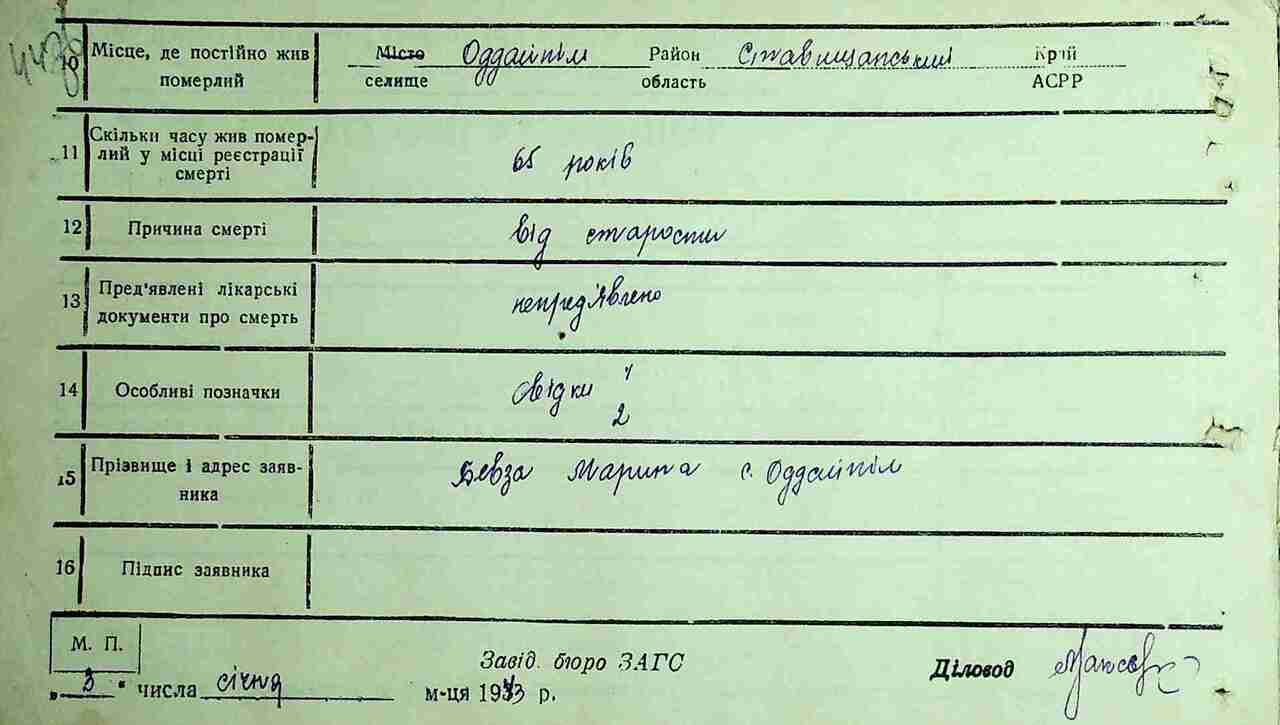 10 Місце, де постійно жив Місто Оддайпіл Район Ставищанський Край
померлий селище область АСРР
11 Скільки часу жив помер-
лий у місці реєстрації 65 років
смерті
12 Причина смерті від старости
13 Пред'явлені лікарські
документи про смерть непредявлено
14 Особливі позначки свідки 1
2
15 Прізвище і адрес заяв-
ника Бевза Марина с. Оддайпіл
16 Підпис заявника
М. П.
Завід. бюро ЗАГС Діловод
„3" числа січня м-ця 1933 р.